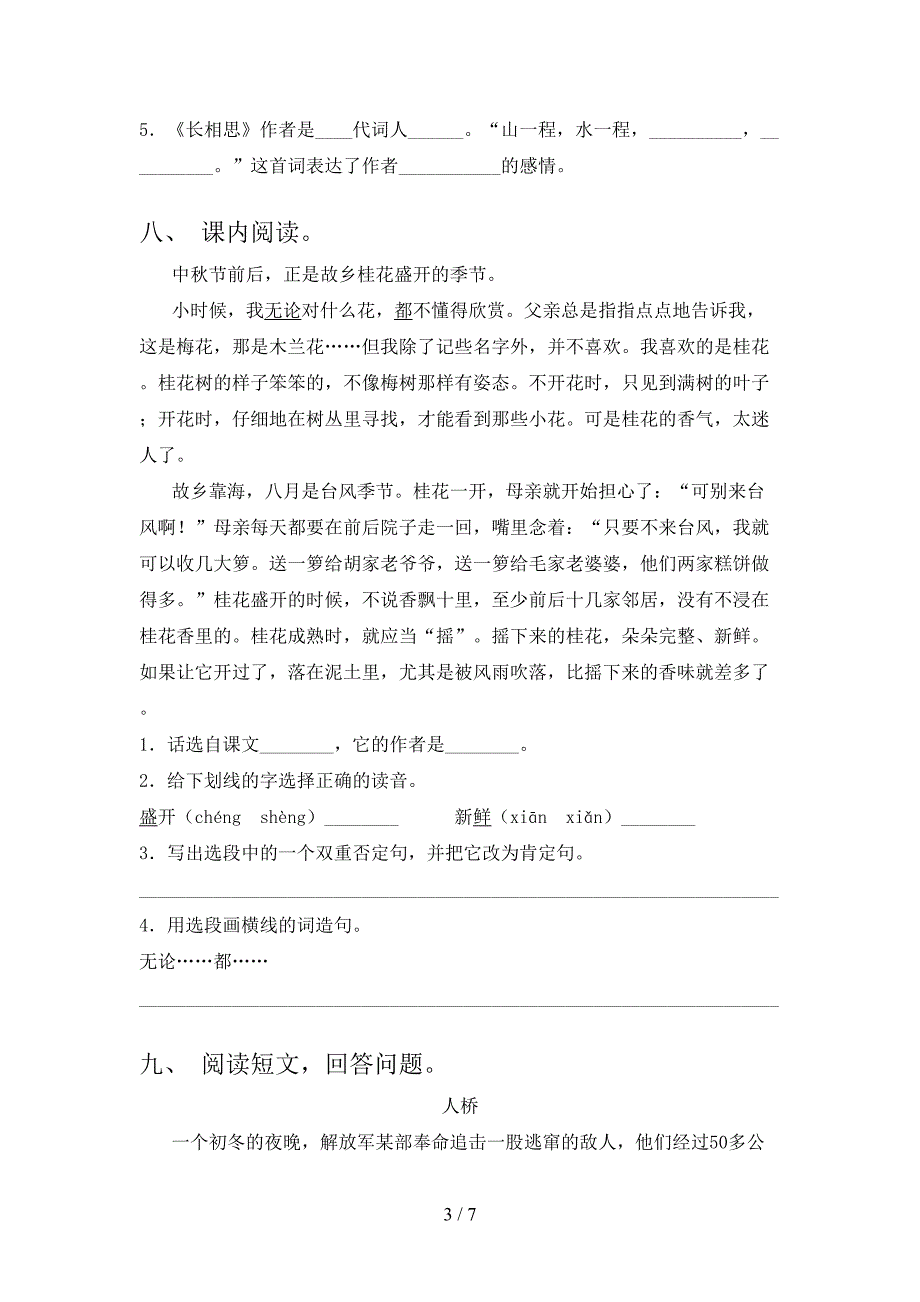 5．《长相思》作者是____代词人______。“山一程，水一程，__________，__
________。”这首词表达了作者___________的感情。
八、 课内阅读。
中秋节前后，正是故乡桂花盛开的季节。
小时候，我无论对什么花，都不懂得欣赏。父亲总是指指点点地告诉我，
这是梅花，那是木兰花……但我除了记些名字外，并不喜欢。我喜欢的是桂花
。桂花树的样子笨笨的，不像梅树那样有姿态。不开花时，只见到满树的叶子
；开花时，仔细地在树丛里寻找，才能看到那些小花。可是桂花的香气，太迷
人了。
故乡靠海，八月是台风季节。桂花一开，母亲就开始担心了：“可别来台
风啊！”母亲每天都要在前后院子走一回，嘴里念着：“只要不来台风，我就
可以收几大箩。送一箩给胡家老爷爷，送一箩给毛家老婆婆，他们两家糕饼做
得多。”桂花盛开的时候，不说香飘十里，至少前后十几家邻居，没有不浸在
桂花香里的。桂花成熟时，就应当“摇”。摇下来的桂花，朵朵完整、新鲜。
如果让它开过了，落在泥土里，尤其是被风雨吹落，比摇下来的香味就差多了
。
1．话选自课文________，它的作者是________。
2．给下划线的字选择正确的读音。
盛开（chéng shèng）________ 新鲜（xiān xiǎn）________
3．写出选段中的一个双重否定句，并把它改为肯定句。
_____________________________________________________________________
4．用选段画横线的词造句。
无论……都……
_____________________________________________________________________
九、 阅读短文，回答问题。
人桥
一个初冬的夜晚，解放军某部奉命追击一股逃窜的敌人，他们经过50多公
3 / 7